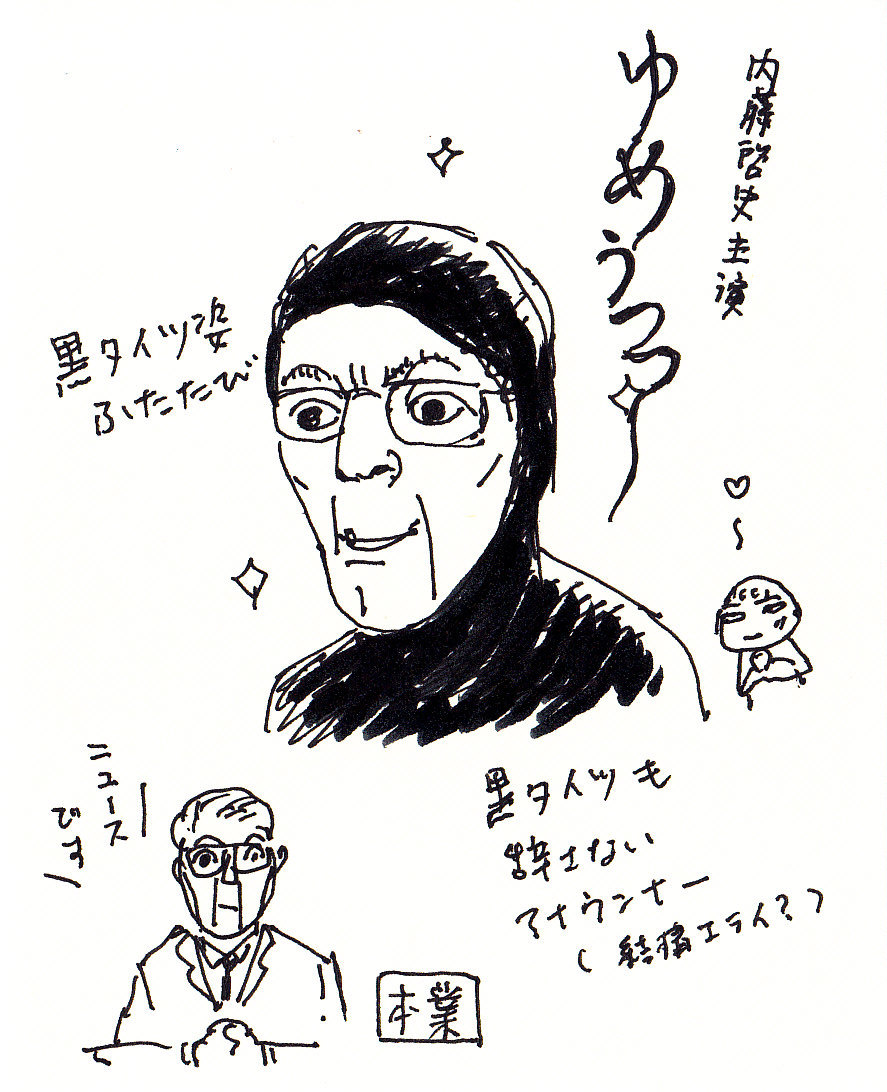 内藤啓史主演
ゆめうつつ
黒タイツ姿
ふたたび
黒タイツも
辞さない
アナウンナー
(結構エライ?)
ニュース
です
本業